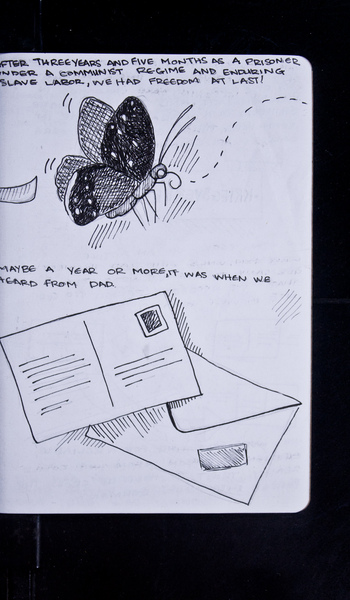 AFTER THREE YEARS AND FIVE MONTHS AS A PRISONER
UNDER A COMMUNIST REGIME AND ENDURING
SLAVE LABOR, WE HAD FREEDOM AT LAST!
MAYBE A YEAR OR MORE, IT WAS WHEN WE
HEARD FROM DAD.